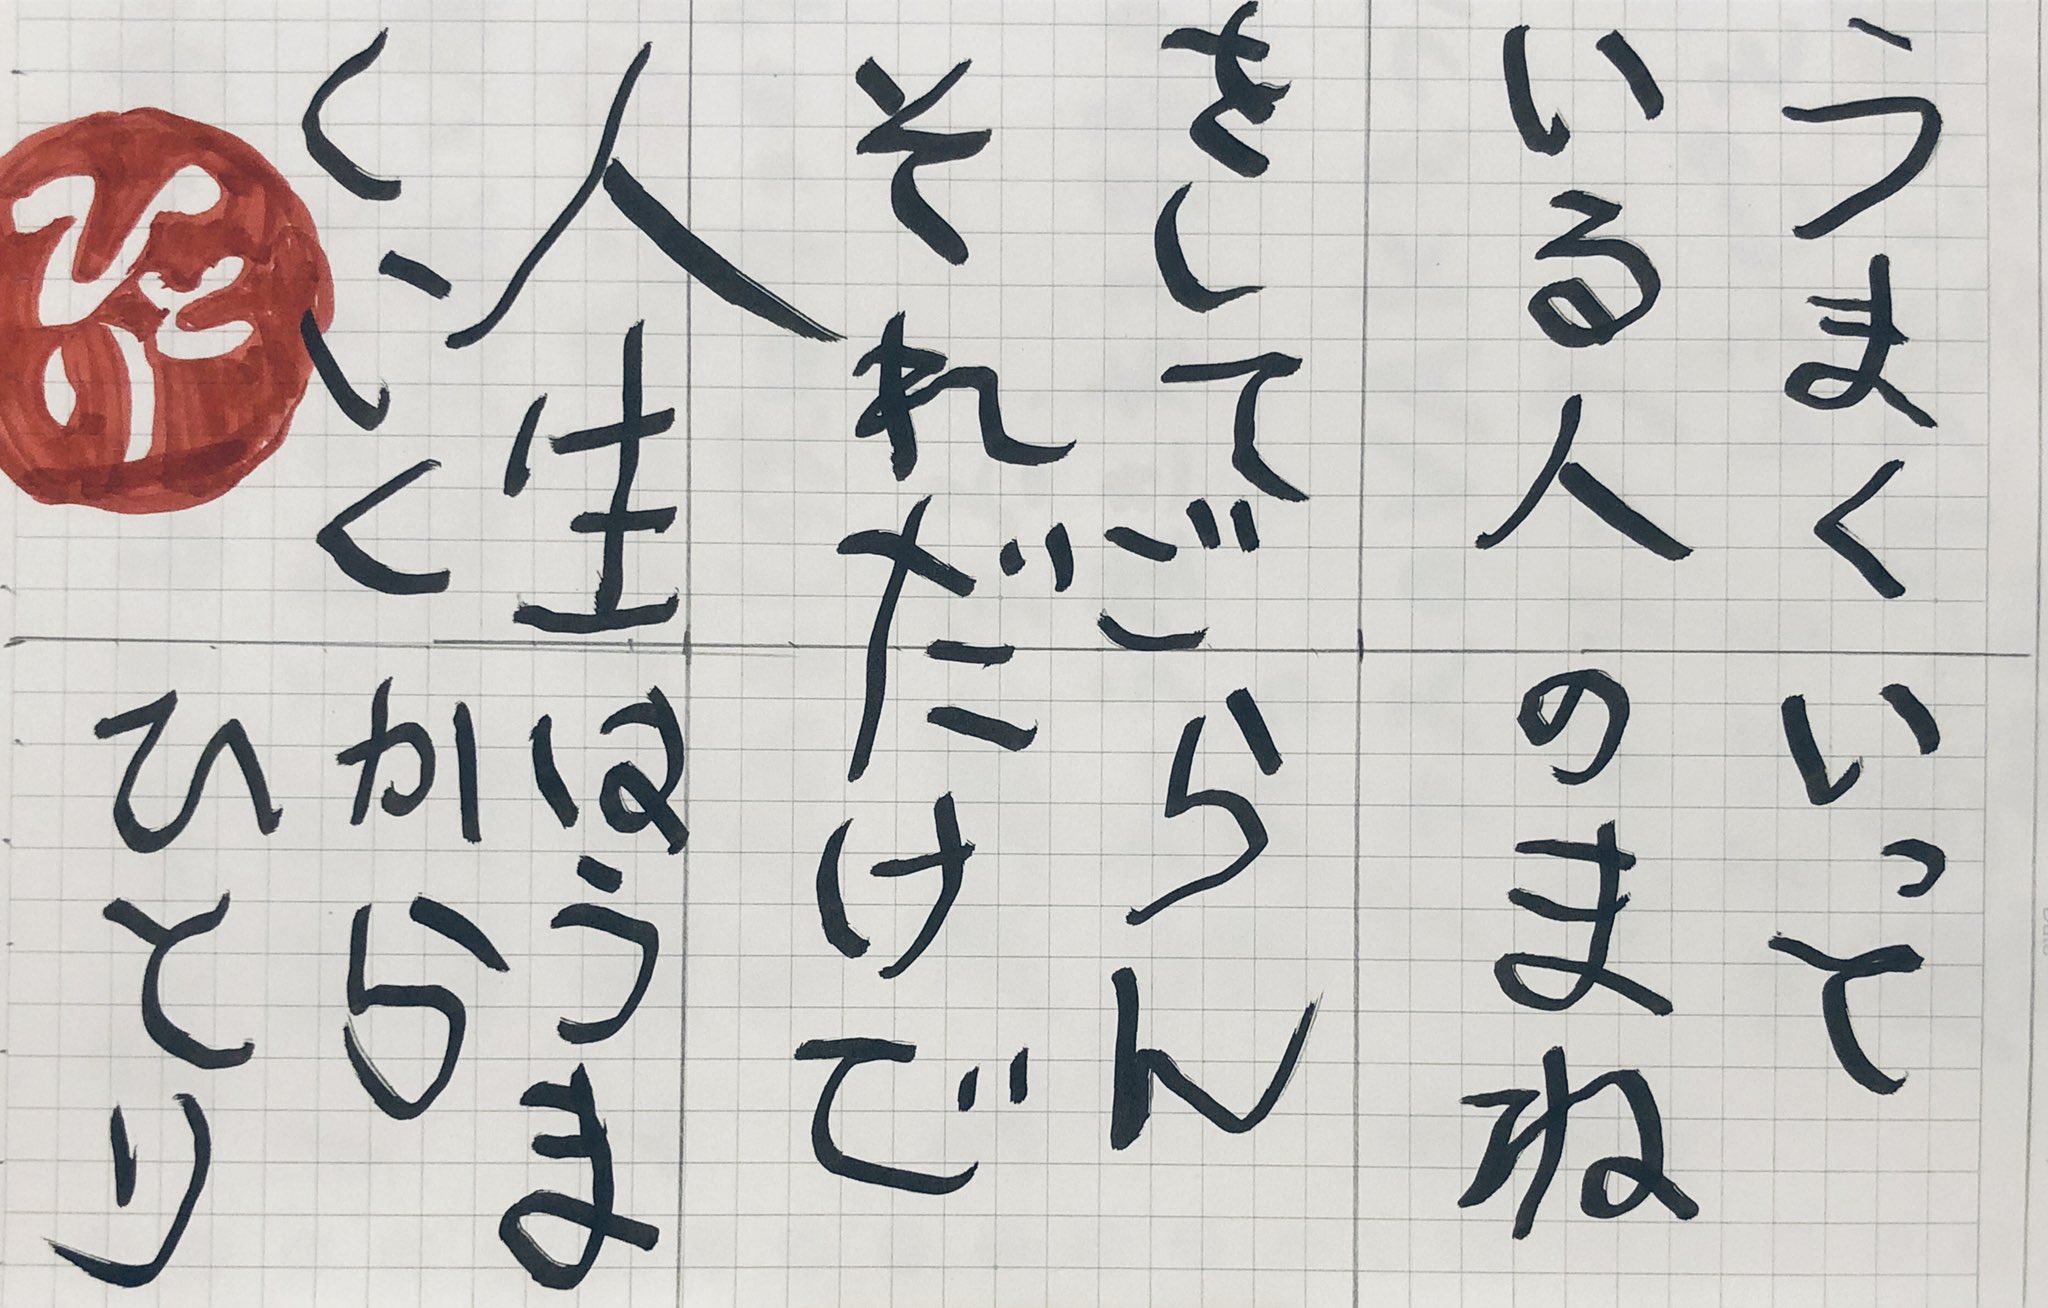 うまくいって
いる人のまね
をしてごらん
それだけで
人生はうま
くいくから
ひとり
ひとり